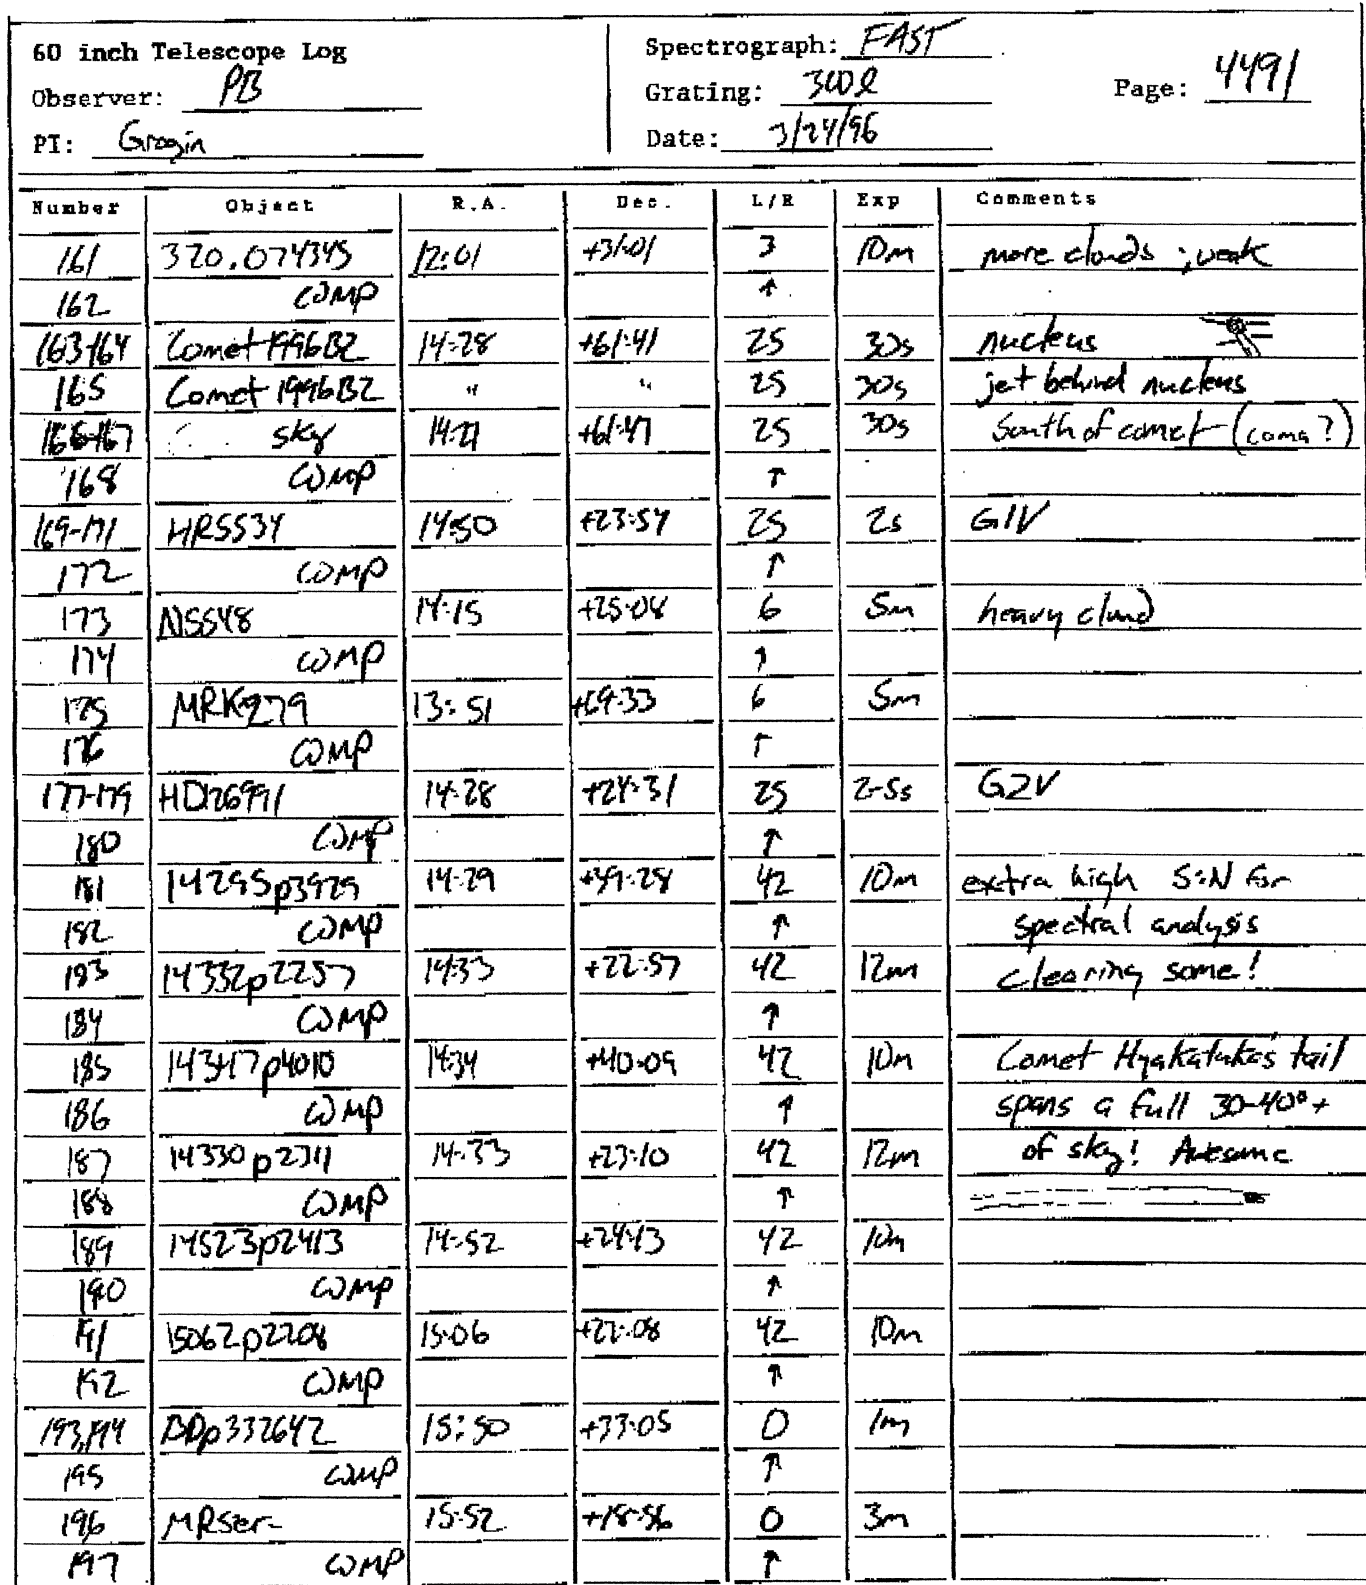 60 inch Telescope Log
Observer: PB
PI: Grogin
Spectrograph: FAST
Grating: 300l
Date: 3/24/96
Page: 4491
Number Object R.A. Dec. L/R Exp Comments
161 320.074345 12:01 +31:01 3 10m more clouds ; weak
162 COMP ↑
163-164 Comet 1996B2 14:28 +61:41 25 30s nucleus
165 Comet 1996B2 " " 25 30s jet behind nucleus
166-167 sky 14:27 +61:47 25 30s South of comet (coma?)
168 COMP ↑
169-171 HR5534 14:50 +23:54 25 2s G1V
172 COMP ↑
173 N5548 14:15 +25:08 6 5m heavy cloud
174 COMP ↑
175 MRK279 13:51 +69:33 6 5m
176 COMP ↑
177-179 HD126991 14:28 +24:31 25 2-5s G2V
180 COMP ↑
181 14295p3929 14:29 +39:28 42 10m extra high S:N for
182 COMP ↑ spectral analysis
183 14332p2257 14:33 +22:57 42 12m clearing some!
184 COMP ↑
185 14347p4010 14:34 +40:09 42 10m Comet Hyakatake's tail
186 COMP ↑ spans a full 30-40°+
187 14330p2311 14:33 +23:10 42 12m of sky! Awesome
188 COMP ↑
189 14523p2413 14:52 +24:13 42 10m
190 COMP ↑
191 15062p2208 15:06 +22:08 42 10m
192 COMP ↑
193,194 BDp332642 15:50 +33:05 0 1m
195 COMP ↑
196 MRser 15:52 +18:56 0 3m
197 COMP ↑